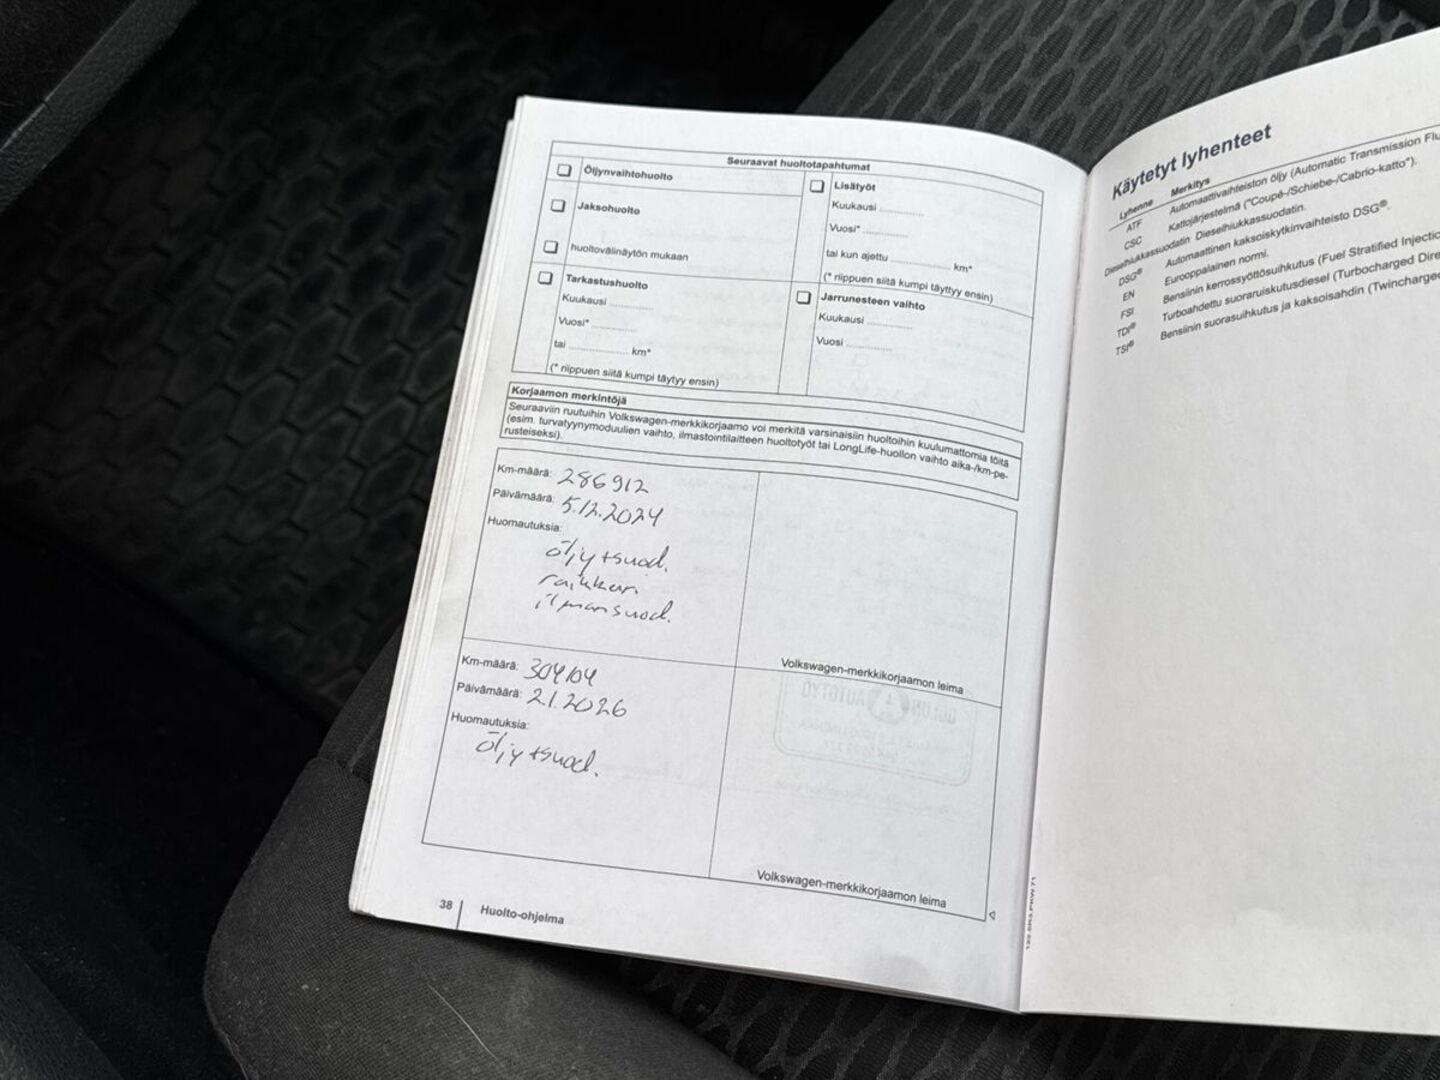 Seuraavat huoltotapahtumat
Öljynvaihtohuolto
Jaksohuolto
huoltovälinäytön mukaan
Tarkastushuolto
Kuukausi ............
Vuosi* ............
tai ................ km*
(* riippuen siitä kumpi täytyy ensin)
Lisätyöt
Kuukausi ............
Vuosi* ............
tai kun ajettu ................ km*
(* riippuen siitä kumpi täyttyy ensin)
Jarrunesteen vaihto
Kuukausi ............
Vuosi ............
Korjaamon merkintöjä
Seuraaviin ruutuihin Volkswagen-merkkikorjaamo voi merkitä varsinaisiin huoltoihin kuulumattomia töitä
(esim. turvatyynymoduulien vaihto, ilmastointilaitteen huoltotyöt tai LongLife-huollon vaihto aika-/km-pe-
rusteiseksi).
Km-määrä: 286912
Päivämäärä: 5.12.2024
Huomautuksia:
öljy+suod.
raikkari.
ilmansuod.
Volkswagen-merkkikorjaamon leima
Km-määrä: 304104
Päivämäärä: 2.1.2026
Huomautuksia:
öljy+suod.
Volkswagen-merkkikorjaamon leima
38
Huolto-ohjelma
Käytetyt lyhenteet
Lyhenne Merkitys
ATF Automaattivaihteiston öljy (Automatic Transmission Flu
CSC Kattojärjestelmä ("Coupé-/Schiebe-/Cabrio-katto").
Dieselhiukkassuodatin Dieselhiukkassuodatin.
DSG® Automaattinen kaksoiskytkinvaihteisto DSG®.
EN Eurooppalainen normi.
FSI Bensiinin kerrossyöttösuihkutus (Fuel Stratified Injectio
TDI® Turboahdettu suoraruiskutusdiesel (Turbocharged Dire
TSI® Bensiinin suorasuihkutus ja kaksoisahdin (Twincharge